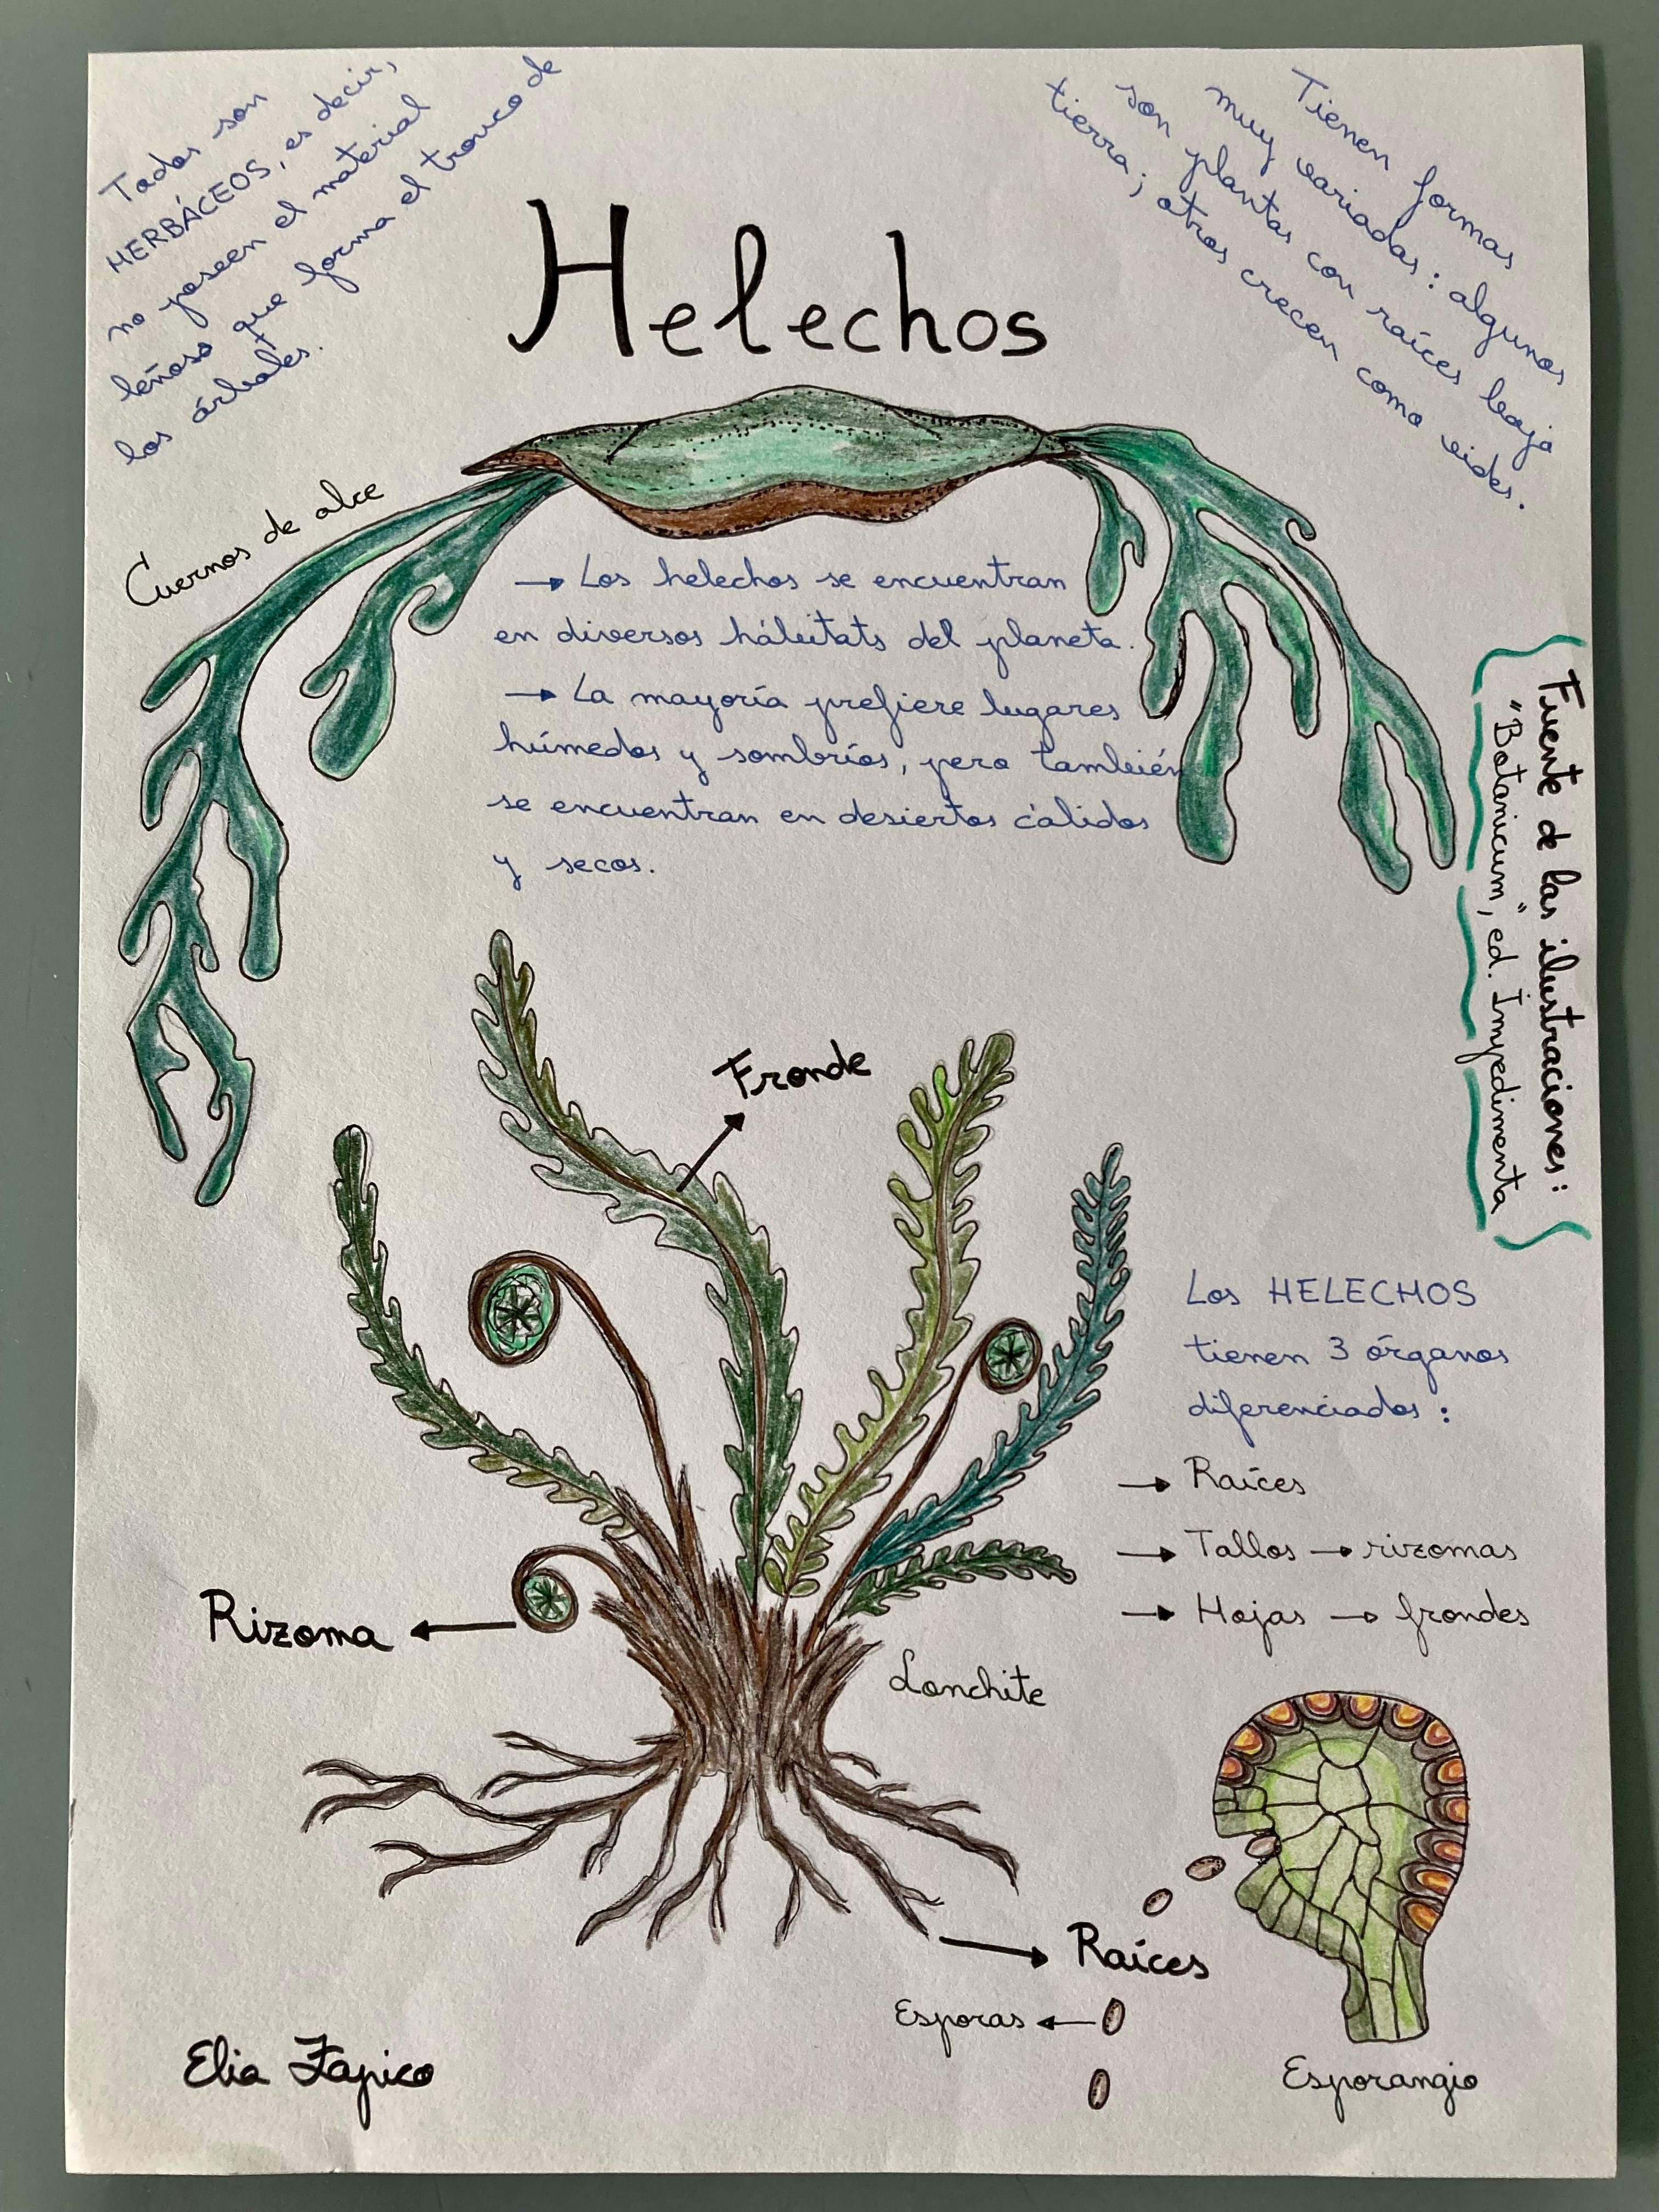 Todos son
HERBÁCEOS, es decir,
no poseen el material
leñoso que forma el tronco de
los árboles.
Tienen formas
muy variadas: algunos
son plantas con raíces bajo
tierra; otros crecen como vides.
Helechos
Cuernos de alce
→ Los helechos se encuentran
en diversos hábitats del planeta.
→ La mayoría prefiere lugares
húmedos y sombríos, pero también
se encuentran en desiertos cálidos
y secos.
Fuente de las ilustraciones:
"Botanicum", ed. Impedimenta
Fronde
Los HELECHOS
tienen 3 órganos
diferenciados:
→ Raíces
→ Tallos → rizomas
→ Hojas → frondes
Rizoma
Lonchite
Raíces
Esporas
Esporangio
Elia Fapico